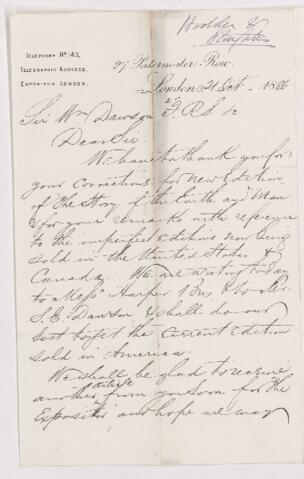 Hodder &
Stoughton
TELEPHONE No 143,
TELEGRAPHIC ADDRESS,
EXPOSITOR LONDON.
27, Paternoster Row.
London, 21 Oct 1886
Sir Wm Dawson F.R.S &c
Dear Sir,
We have to thank you for
your Corrections for new Edition
of The Story of the Earth and Man
& for your remarks with reference
to the imperfect Editions now being
sold in the United States &
Canada. We are writing today
to Messrs Harper & Bros & to Mr
S. E. Dawson & shall do our
best to get the current Edition
sold in America.
We shall be glad to receive
another article from you soon for the
Expositor, and hope we may